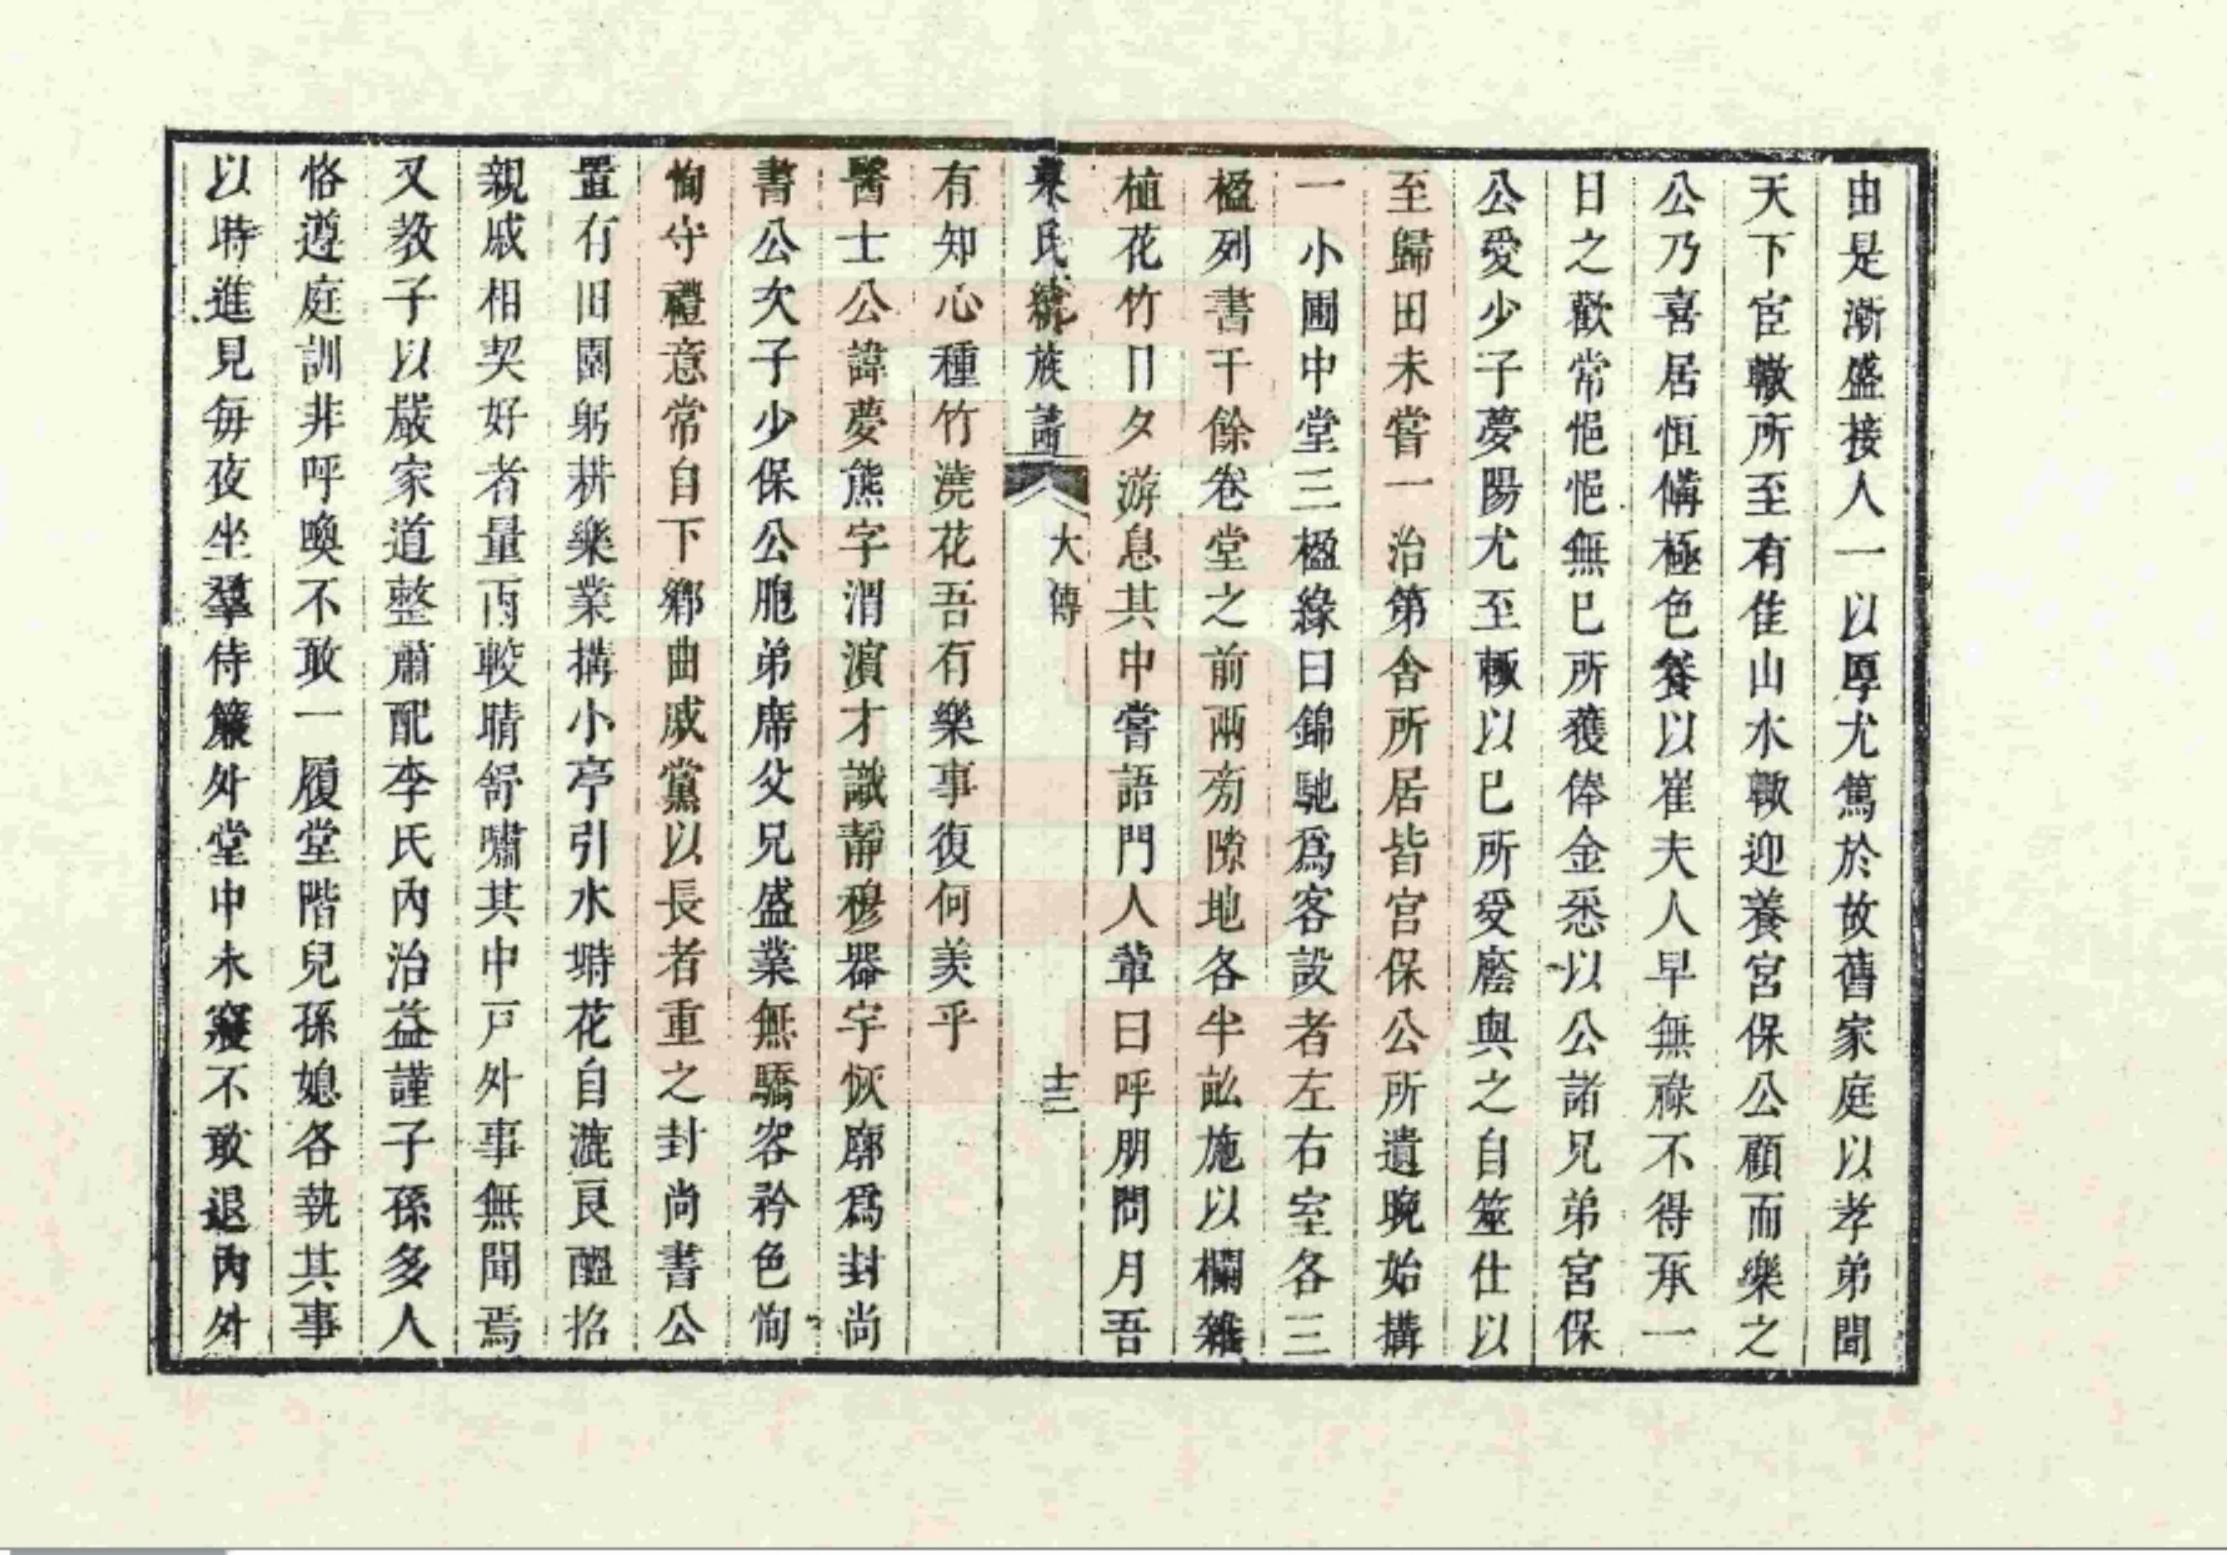 由是漸盛接人一以厚尤篤於故舊家庭以孝弟聞
天下宦轍所至有佳山水輙迎養宮保公顧而樂之
公乃喜居恒備極色養以崔夫人早無祿不得承一
日之歡常悒悒無已所獲俸金悉以公諸兄弟宮保
公愛少子夢陽尤至輒以已所受廕與之自筮仕以
至歸田未嘗一治第舍所居皆宮保公所遺晚始搆
一小圃中堂三楹緣曰錦馳爲客設者左右室各三
楹列書千餘卷堂之前兩旁隙地各半畝施以欄雜
植花竹日夕游息其中嘗語門人輩曰呼朋問月吾
氏統族譜 大傳 十三
有知心種竹澆花吾有樂事復何羨乎
醫士公諱夢熊字渭濵才識靜穆器宇恢廓爲封尚
書公次子少保公胞弟席父兄盛業無驕容矜色恂
恂守禮意常自下鄉曲戚黨以長者重之封尚書公
置有旧園躬耕樂業搆小亭引水塒花自漉良醞招
親戚相契好者量雨較晴舒嘯其中戸外事無聞焉
又教子以嚴家道整肅配李氏內治益謹子孫多人
恪遵庭訓非呼喚不敢一履堂階兒孫媳各執其事
以時進見每夜坐羣侍簾外堂中未寢不敢退內外